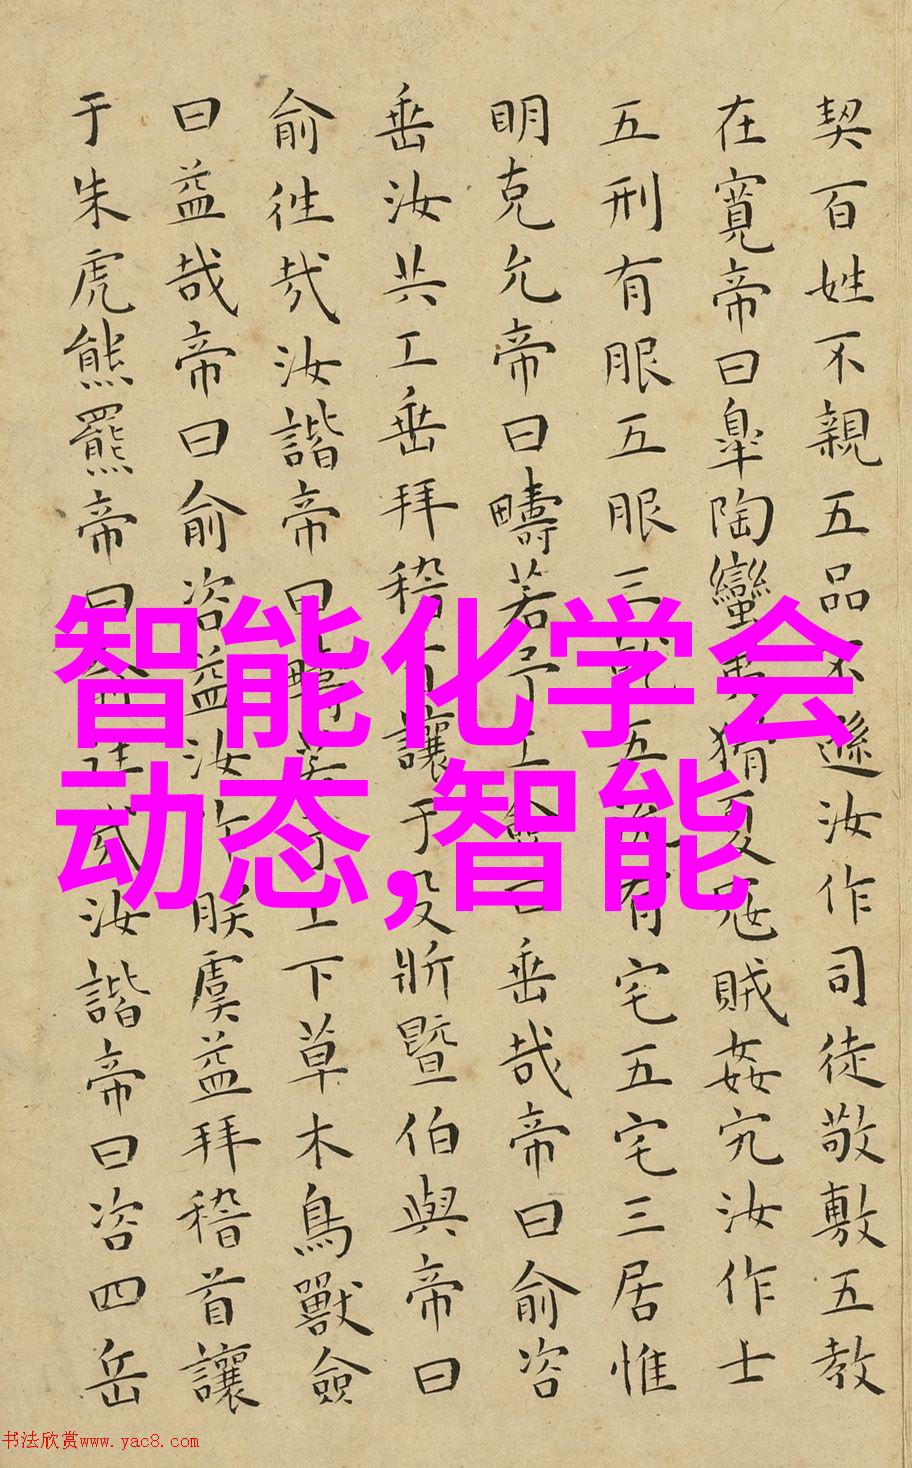 契百姓不親五品不遜汝作司徒敬敷五教
在寬帝曰皐陶蠻夷猾夏寇賊姦宄汝作士
五刑有服五服三就五有宅五宅三居惟
明克允帝曰疇若予工僉曰垂哉帝曰俞咨
垂汝共工垂拜稽首讓于殳斨暨伯與帝曰
俞往哉汝諧帝曰疇若予上下草木鳥獸僉
曰益哉帝曰俞咨益汝作朕虞益拜稽首讓
于朱虎熊羆帝曰俞往哉汝諧帝曰咨四岳
智能化学会
动态,智能
书法欣赏www.yac8.com